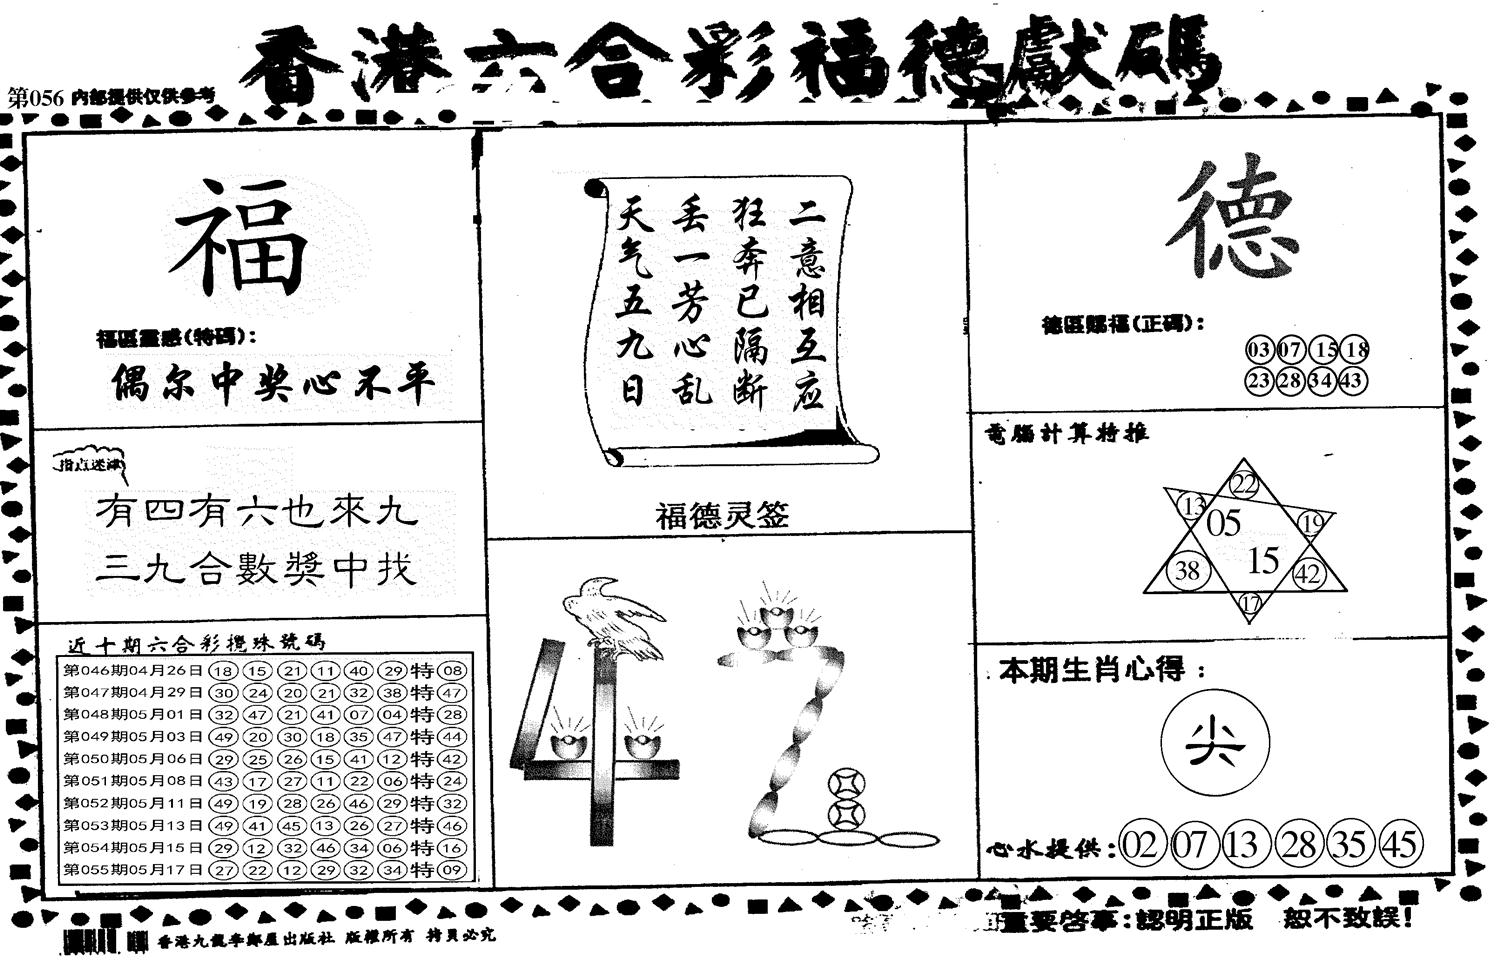 香港六合彩福德獻碼
第056 内部提供仅供参考
福
福區靈感(特碼):
偶尔中奖心不平
指点迷津
有四有六也來九
三九合數獎中找
近十期六合彩攪珠號碼
第046期04月26日 18 15 21 11 40 29 特 08
第047期04月29日 30 24 20 21 32 38 特 47
第048期05月01日 32 47 21 41 07 04 特 28
第049期05月03日 49 20 30 18 35 47 特 44
第050期05月06日 29 25 26 15 41 12 特 42
第051期05月08日 43 17 27 11 22 06 特 24
第052期05月11日 49 19 28 26 46 29 特 32
第053期05月13日 49 41 45 13 26 27 特 46
第054期05月15日 29 12 32 46 34 06 特 16
第055期05月17日 27 22 12 29 32 34 特 09
二意相互应
狂奔已隔断
丢一芳心乱
天气五九日
福德灵签
42
德
德區賜福(正碼):
03 07 15 18
23 28 34 43
電腦計算特推
22
13 05 19
38 15 42
17
本期生肖心得:
尖
心水提供: 02 07 13 28 35 45
香港九龍李鄭屋出版社 版權所有 拷貝必究
重要啓事:認明正版 恕不致誤!